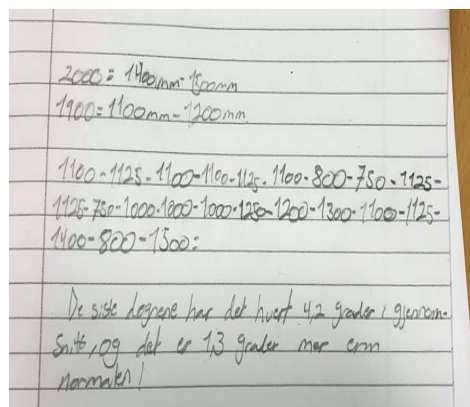 2000 = 1400mm - 1500mm
1900 = 1100mm - 1200mm
1100 - 1125 - 1100 - 1100 - 1125 - 1100 - 800 - 750 - 1125 -
1125 - 750 - 1000 - 1000 - 1000 - 1250 - 1200 - 1300 - 1100 - 1125 -
1400 - 800 - 1500 =
De siste døgnene har det hvert 4,2 grader i gjennom-
snitt, og det er 1,3 grader mer enn
normalen!